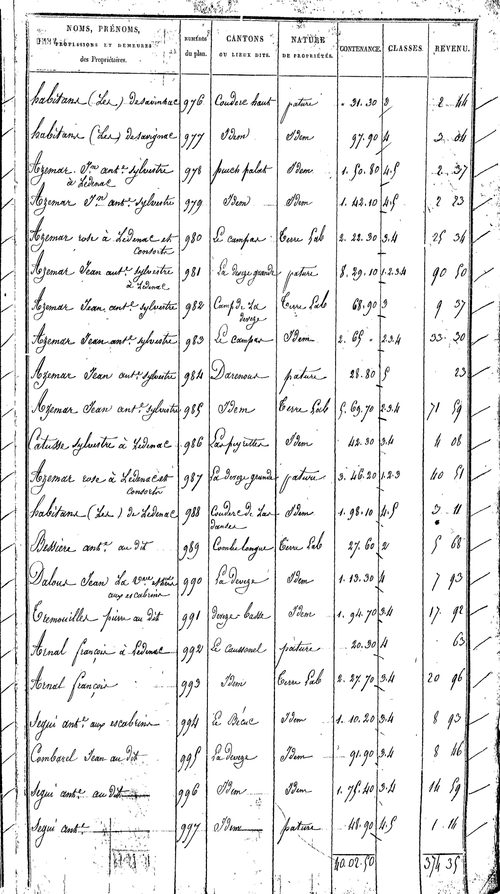 NOMS, PRÉNOMS, PROFESSIONS ET DEMEURES des Propriétaires. | NUMÉROS du plan. | CANTONS OU LIEUX DITS. | NATURE DE PROPRIÉTÉS. | CONTENANCE. | CLASSES. | REVENU.
habitans (Les) de savinhac 976 Couderc haut pature . 31.30 2 2 44
habitans (Les) de savignac 977 Idem Idem 97.90 4 3 04
Azemar Jn ant.e sylvestre à Ledenac 978 puech palat Idem 1. 50. 80 4.5 2 37
Azemar Jn ant.e sylvestre 979 Idem Idem 1. 42. 10 4.5 2 23
Azemar rose à Ledenac et consorts 980 Le campas Terre Lab 2. 22. 30 3.4 25 34
Azemar Jean ant.e sylvestre à Ledenac 981 La deveze grande pature 8. 29. 10 1.2.3.4 90 50
Azemar Jean ant.e sylvestre 982 Camp de La deveze Terre Lab 68.90 3 9 37
Azemar Jean ant.e sylvestre 983 Le campas Idem 2. 65 . 2.3.4 33 30
Azemar Jean ant.e sylvestre 984 Darenous pature 28.80 5 23
Azemar Jean ant.e sylvestre 985 Idem Terre Lab 5. 69. 70 2.3.4 71 59
Catusse sylvestre à Ledenac 986 Las peyrettes Idem 42.30 3.4 4 08
Azemar rose à Ledenac et consorts 987 La deveze grande pature 3. 46. 20 1.2.3 40 51
habitans (Les) de Ledenac 988 Couderc de Las danses Idem 1. 98. 10 4.5 3 11
Bessiere ant.e au dit 989 Combe longue Terre Lab 27.60 2 5 68
Dalous Jean La veuve aux escabrins 990 La deveze Idem 1. 13. 30 4 7 93
Tremouilles pierre au dit 991 deveze basse Idem 1. 94. 70 3.4 17 92
Arnal françois à Ledenac 992 Le caussanel pature 20.30 4 63
Arnal françois 993 Idem Terre Lab 2. 27. 70 3.4 20 96
Segui ant.e aux escabrins 994 Le Bécic Idem 1. 10. 20 3.4 8 93
Combarel Jean au dit 995 La deveze Idem 91.90 3.4 8 46
Segui ant.e au dit 996 Idem Idem 1. 75. 40 3.4 14 59
Segui ant.e 997 Idem pature 48.90 4.5 1 14
40.02.50 374 35